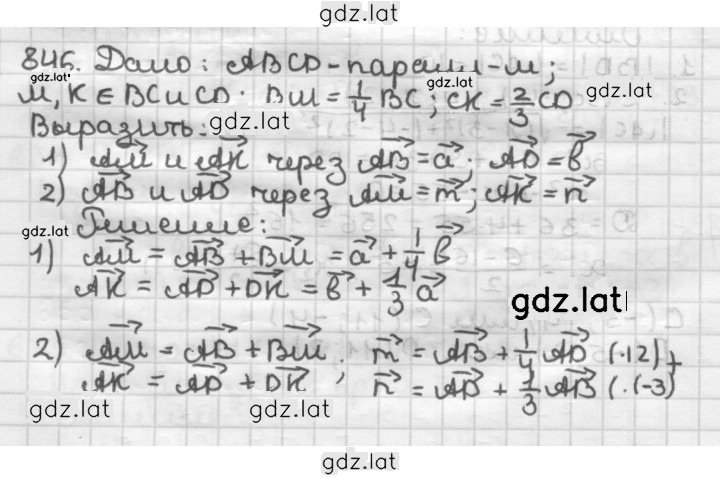 gdz.lat
846. Дано: ABCD-паралл-м;
gdz.lat gdz.lat
M, K ∈ BC и CD. BM = 1/4 BC; CK = 2/3 CD gdz.lat
Выразить: gdz.lat
1) AM и AK через AB = a; AD = b
2) AB и AD через AM = m; AK = n
gdz.lat Решение:
1) AM = AB + BM = a + 1/4 b
AK = AD + DK = b + 1/3 a
gdz.lat
2) AM = AB + BM. m = AB + 1/4 AD (·12) +
AK = AD + DK; n = AD + 1/3 AB (·(-3)
gdz.lat gdz.lat gdz.lat
gdz.lat